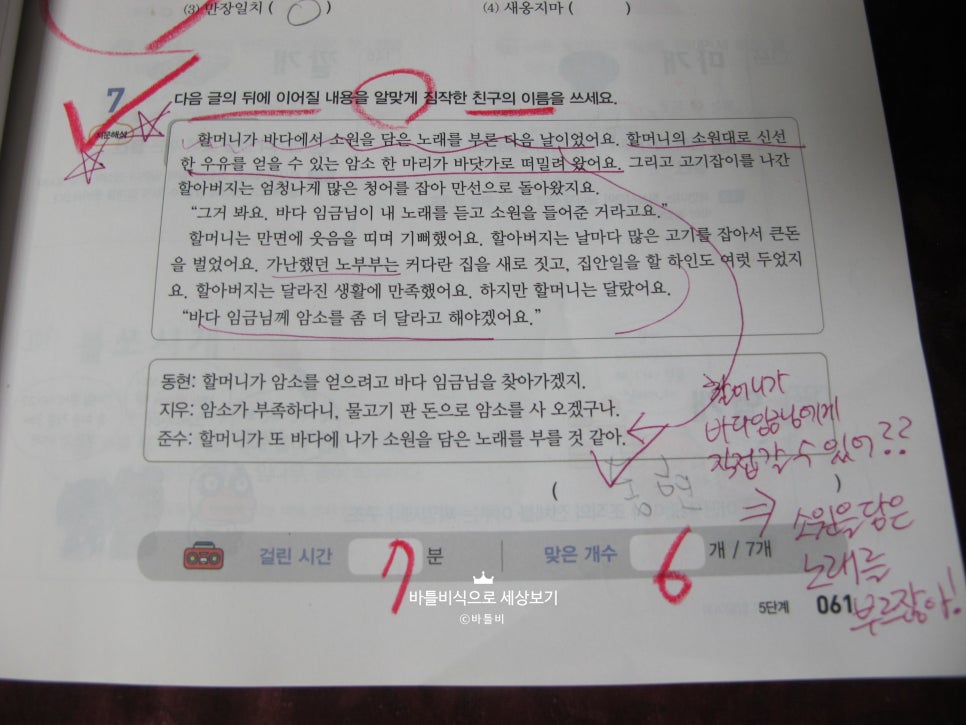 (3) 반장일치 ( ○ ) (4) 새옹지마 ( )
7 다음 글의 뒤에 이어질 내용을 알맞게 짐작한 친구의 이름을 쓰세요.
할머니가 바다에서 소원을 담은 노래를 부른 다음 날이었어요. 할머니의 소원대로 신선
한 우유를 얻을 수 있는 암소 한 마리가 바닷가로 떠밀려 왔어요. 그리고 고기잡이를 나간
할아버지는 엄청나게 많은 청어를 잡아 만선으로 돌아왔지요.
“그거 봐요. 바다 임금님이 내 노래를 듣고 소원을 들어준 거라고요.”
할머니는 만면에 웃음을 띠며 기뻐했어요. 할아버지는 날마다 많은 고기를 잡아서 큰돈
을 벌었어요. 가난했던 노부부는 커다란 집을 새로 짓고, 집안일을 할 하인도 여럿 두었지
요. 할아버지는 달라진 생활에 만족했어요. 하지만 할머니는 달랐어요.
“바다 임금님께 암소를 좀 더 달라고 해야겠어요.”
동현: 할머니가 암소를 얻으려고 바다 임금님을 찾아가겠지.
지우: 암소가 부족하다니, 물고기 판 돈으로 암소를 사 오겠구나.
준수: 할머니가 또 바다에 나가 소원을 담은 노래를 부를 것 같아.
할머니가
바다임금님에게
직접 갈 수 있어??
( 동현 )
⇒ 소원을 담은
노래를
부르잖아!
걸린 시간 7 분 맞은 개수 6 개 / 7개
바틀비식으로 세상보기
ⓒ바틀비
5단계 061